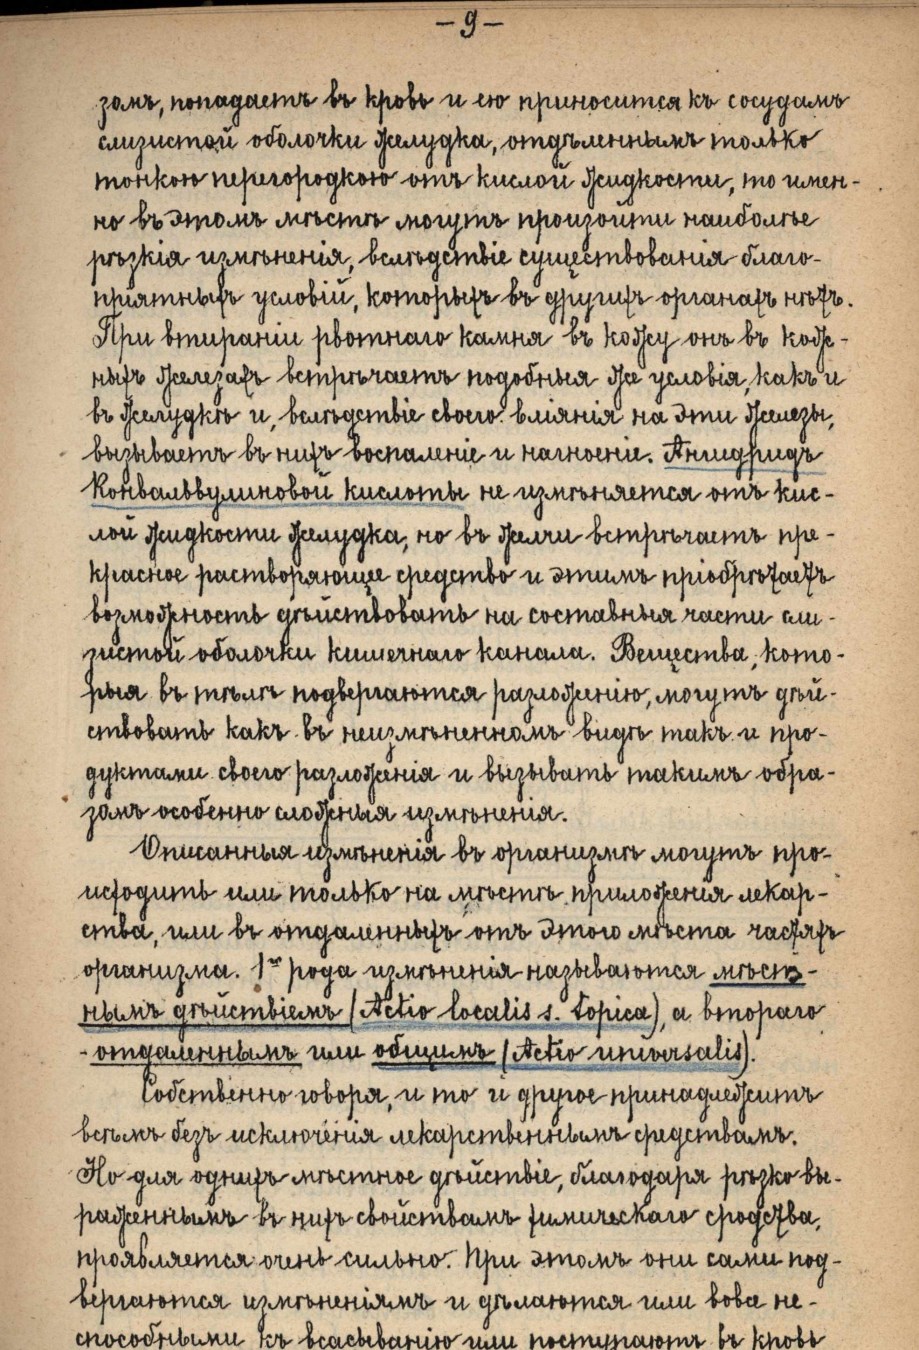 — 9 —
зомъ, попадаетъ въ кровь и ею приносится къ сосудамъ
слизистой оболочки желудка, отдѣленнымъ только
тонкою перегородкою отъ кислой жидкости, то имен-
но въ этомъ мѣстѣ могутъ произойти наиболѣе
рѣзкія измѣненія, вслѣдствіе существованія благо-
пріятныхъ условій, которыхъ въ другихъ органахъ нѣтъ.
При втираніи рвотнаго камня въ кожу онъ въ кож-
ныхъ железахъ встрѣчаетъ подобныя же условія, какъ и
въ желудкѣ и, вслѣдствіе своего вліянія на эти железы,
вызываетъ въ нихъ воспаленіе и нагноеніе. Ангидридъ
Конвальвулиновой кислоты не измѣняется отъ кис-
лой жидкости желудка, но въ желчи встрѣчаетъ пре-
красное растворяющее средство и этимъ пріобрѣтаетъ
возможность дѣйствовать на составныя части сли-
зистой оболочки кишечнаго канала. Вещества, кото-
рыя въ тѣлѣ подвергаются разложенію, могутъ дѣй-
ствовать какъ въ неизмѣненномъ видѣ такъ и про-
дуктами своего разложенія и вызывать такимъ обра-
зомъ особенно сложныя измѣненія.
Описанныя измѣненія въ организмѣ могутъ про-
исходить или только на мѣстѣ приложенія лекар-
ства, или въ отдаленныхъ отъ этого мѣста частяхъ
организма. 1го рода измѣненія называются мѣст-
нымъ дѣйствіемъ (Actio localis s. topica), а втораго
- отдаленнымъ или общимъ (Actio universalis).
Собственно говоря, и то и другое принадлежитъ
всѣмъ безъ исключенія лекарственнымъ средствамъ.
Но для однихъ мѣстное дѣйствіе, благодаря рѣзко вы-
раженнымъ въ нихъ свойствамъ химическаго сродства,
проявляется очень сильно. При этомъ они сами под-
вергаются измѣненіямъ и дѣлаются или вовсе не-
способными къ всасыванію или поступаютъ въ кровь